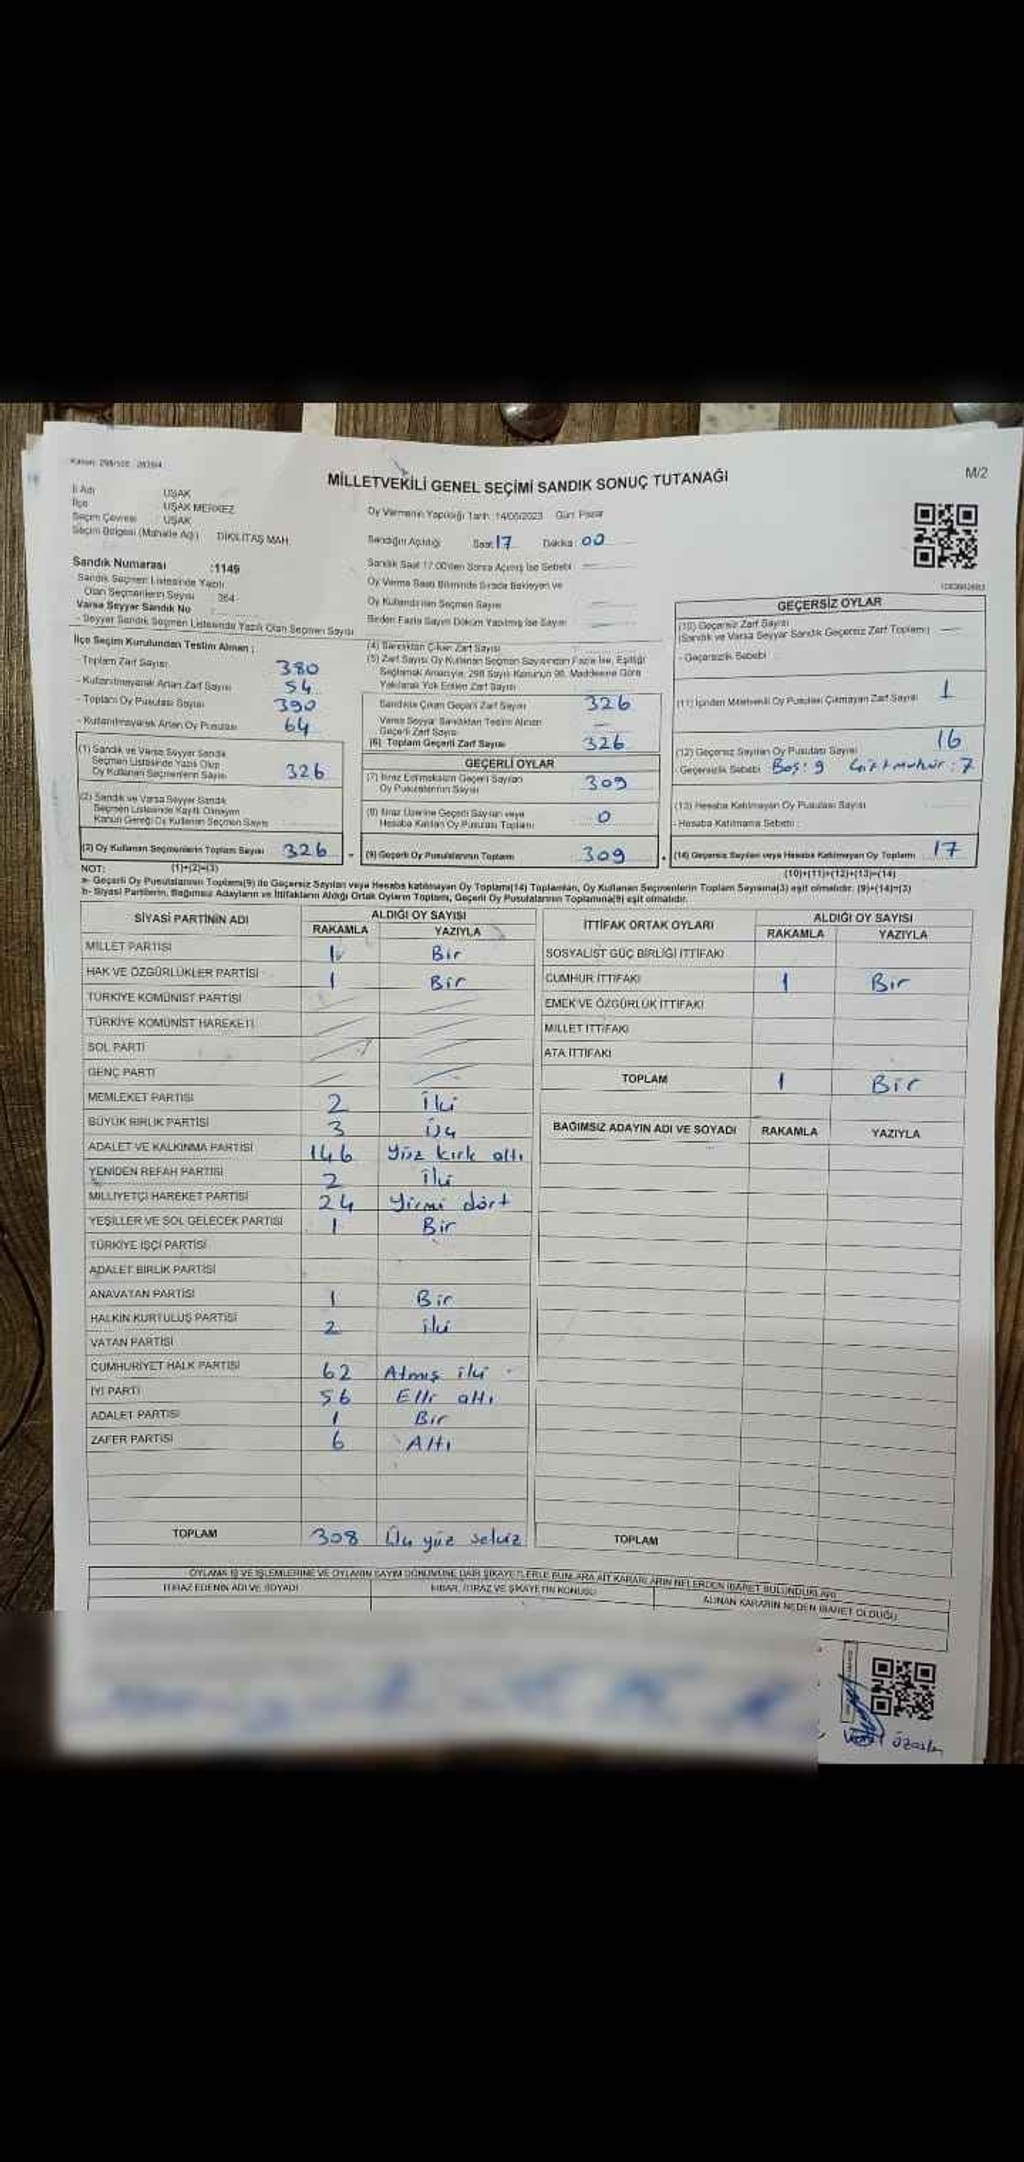 Kanun: 298/105 - 2839/4
MİLLETVEKİLİ GENEL SEÇİMİ SANDIK SONUÇ TUTANAĞI
M/2
İl Adı UŞAK
İlçe UŞAK MERKEZ
Seçim Çevresi UŞAK
Seçim Bölgesi (Mahalle Adı) DİKİLİTAŞ MAH.
Oy Vermenin Yapıldığı Tarih: 14/05/2023 Gün: Pazar
Sandığın Açıldığı Saat 17 Dakika: 00
Sandık Saat 17.00'den Sonra Açılmış İse Sebebi
Oy Verme Saati Bitiminde Sırada Bekleyen ve
Oy Kullandırılan Seçmen Sayısı
Birden Fazla Sayım Döküm Yapılmış İse Sayısı
Sandık Numarası :1149
Sandık Seçmen Listesinde Yazılı
Olan Seçmenlerin Sayısı : 364
Varsa Seyyar Sandık No
- Seyyar Sandık Seçmen Listesinde Yazılı Olan Seçmen Sayısı
İlçe Seçim Kurulundan Teslim Alınan :
- Toplam Zarf Sayısı 380
- Kullanılmayarak Artan Zarf Sayısı 54
- Toplam Oy Pusulası Sayısı 390
- Kullanılmayarak Artan Oy Pusulası 64
(1) Sandık ve Varsa Seyyar Sandık
Seçmen Listesinde Yazılı Olup
Oy Kullanan Seçmenlerin Sayısı 326
(2) Sandık ve Varsa Seyyar Sandık
Seçmen Listesinde Kayıtlı Olmayan
Kanun Gereği Oy Kullanan Seçmen Sayısı
(3) Oy Kullanan Seçmenlerin Toplam Sayısı 326
(1)+(2)=(3)
(4) Sandıktan Çıkan Zarf Sayısı
(5) Zarf Sayısı Oy Kullanan Seçmen Sayısından Fazla İse, Eşitliği
Sağlamak Amacıyla, 298 Sayılı Kanunun 98. Maddesine Göre
Yakılarak Yok Edilen Zarf Sayısı
Sandıkta Çıkan Geçerli Zarf Sayısı 326
Varsa Seyyar Sandıktan Teslim Alınan
Geçerli Zarf Sayısı
(6) Toplam Geçerli Zarf Sayısı 326
GEÇERLİ OYLAR
(7) İtiraz Edilmeksizin Geçerli Sayılan
Oy Pusulalarının Sayısı 309
(8) İtiraz Üzerine Geçerli Sayılan veya
Hesaba Katılan Oy Pusulası Toplamı 0
(9) Geçerli Oy Pusulalarının Toplamı 309
GEÇERSİZ OYLAR
(10) Geçersiz Zarf Sayısı
(Sandık ve Varsa Seyyar Sandık Geçersiz Zarf Toplamı)
- Geçersizlik Sebebi :
(11) İçinden Milletvekili Oy Pusulası Çıkmayan Zarf Sayısı 1
(12) Geçersiz Sayılan Oy Pusulası Sayısı 16
- Geçersizlik Sebebi Boş: 9 Çift mühür: 7
(13) Hesaba Katılmayan Oy Pusulası Sayısı
- Hesaba Katılmama Sebebi :
(14) Geçersiz Sayılan veya Hesaba Katılmayan Oy Toplamı 17
(10)+(11)+(12)+(13)=(14)
NOT:
a- Geçerli Oy Pusulalarının Toplamı(9) ile Geçersiz Sayılan veya Hesaba katılmayan Oy Toplamı(14) Toplamları, Oy Kullanan Seçmenlerin Toplam Sayısına(3) eşit olmalıdır. (9)+(14)=(3)
b- Siyasi Partilerin, Bağımsız Adayların ve İttifakların Aldığı Ortak Oyların Toplamı, Geçerli Oy Pusulalarının Toplamına(9) eşit olmalıdır.
SİYASİ PARTİNİN ADI ALDIĞI OY SAYISI
RAKAMLA YAZIYLA
MİLLET PARTİSİ 1 Bir
HAK VE ÖZGÜRLÜKLER PARTİSİ 1 Bir
TÜRKİYE KOMÜNİST PARTİSİ
TÜRKİYE KOMÜNİST HAREKETİ
SOL PARTİ
GENÇ PARTİ
MEMLEKET PARTİSİ 2 İki
BÜYÜK BİRLİK PARTİSİ 3 Üç
ADALET VE KALKINMA PARTİSİ 146 Yüz kırk altı
YENİDEN REFAH PARTİSİ 2 İki
MİLLİYETÇİ HAREKET PARTİSİ 24 Yirmi dört
YEŞİLLER VE SOL GELECEK PARTİSİ 1 Bir
TÜRKİYE İŞÇİ PARTİSİ
ADALET BİRLİK PARTİSİ
ANAVATAN PARTİSİ 1 Bir
HALKIN KURTULUŞ PARTİSİ 2 İki
VATAN PARTİSİ
CUMHURİYET HALK PARTİSİ 62 Atmış iki
İYİ PARTİ 56 Elli altı
ADALET PARTİSİ 1 Bir
ZAFER PARTİSİ 6 Altı
TOPLAM 308 Üç yüz sekiz
İTTİFAK ORTAK OYLARI ALDIĞI OY SAYISI
RAKAMLA YAZIYLA
SOSYALİST GÜÇ BİRLİĞİ İTTİFAKI
CUMHUR İTTİFAKI 1 Bir
EMEK VE ÖZGÜRLÜK İTTİFAKI
MİLLET İTTİFAKI
ATA İTTİFAKI
TOPLAM 1 Bir
BAĞIMSIZ ADAYIN ADI VE SOYADI RAKAMLA YAZIYLA
TOPLAM
OYLAMA İŞ VE İŞLEMLERİNE VE OYLARIN SAYIM DÖKÜMÜNE DAİR ŞİKAYETLERLE BUNLARA AİT KARARLARIN NELERDEN İBARET BULUNDUKLARI
İTİRAZ EDENİN ADI VE SOYADI İHBAR, İTİRAZ VE ŞİKAYETİN KONUSU ALINAN KARARIN NEDEN İBARET OLDUĞU